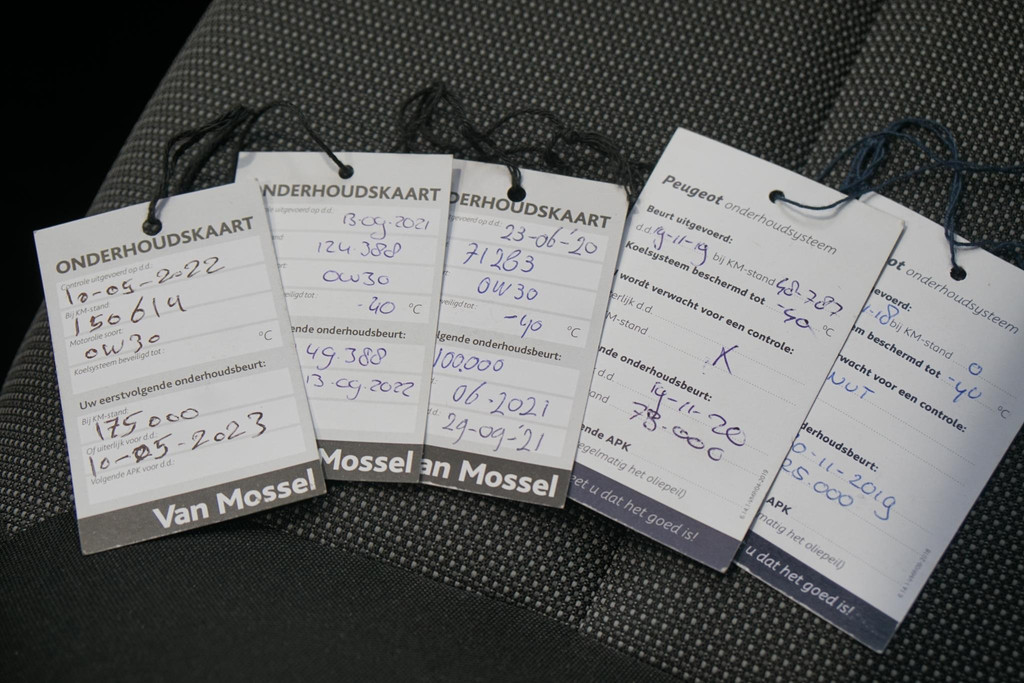 ONDERHOUDSKAART
Controle uitgevoerd op d.d.:
10-05-2022
Bij KM-stand:
150614
Motorolie soort:
0W30
Koelsysteem beveiligd tot: °C
Uw eerstvolgende onderhoudsbeurt:
Bij KM-stand:
175000
Of uiterlijk voor d.d.:
10-05-2023
Volgende APK voor d.d.:
Van Mossel
NDERHOUDSKAART
uitgevoerd op d.d.:
13-09-2021
124.388
0W30
tot -40 °C
ende onderhoudsbeurt:
49.388
13-09-2022
Mossel
DERHOUDSKAART
gevoerd op d.d.:
23-06-'20
71263
0W30
eiligd tot: -40 °C
lgende onderhoudsbeurt:
100.000
06-2021
29-09-'21
an Mossel
Peugeot onderhoudsysteem
Beurt uitgevoerd:
d.d. 19-11-19 bij KM-stand 48.787
Koelsysteem beschermd tot -40 °C
wordt verwacht voor een controle:
erlijk d.d.
M-stand X
ende onderhoudsbeurt:
d.d. 19-11-20
tand 73.000
ende APK
egelmatig het oliepeil)
et u dat het goed is!
ot onderhoudsysteem
evoerd:
-18 bij KM-stand 0
m beschermd tot -40 °C
wacht voor een controle:
NUT
derhoudsbeurt:
0-11-2019
25.000
APK
matig het oliepeil)
u dat het goed is!